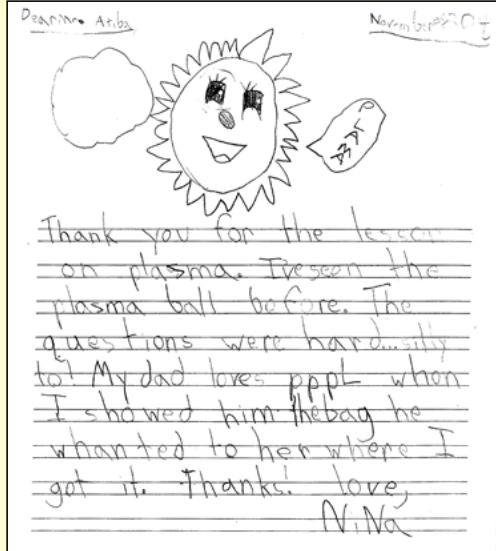 Dear Atiba,
November
PLASMA
Thank you for the lesson
on plasma. I've seen the
plasma ball before. The
questions were hard...silly
to! My dad loves pppL when
I showed him the bag he
whanted to her where I
got it. Thanks! love,
NiNa